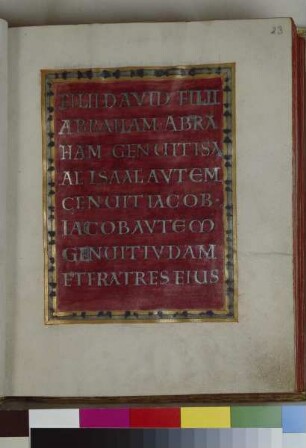 23
FILII DAVID FILII
ABRAHAM ABRA
HAM GENUIT ISA
AC ISAAC AUTEM
GENUIT IACOB·
IACOB AUTEM
GENUIT IUDAM
ET FRATRES EIUS